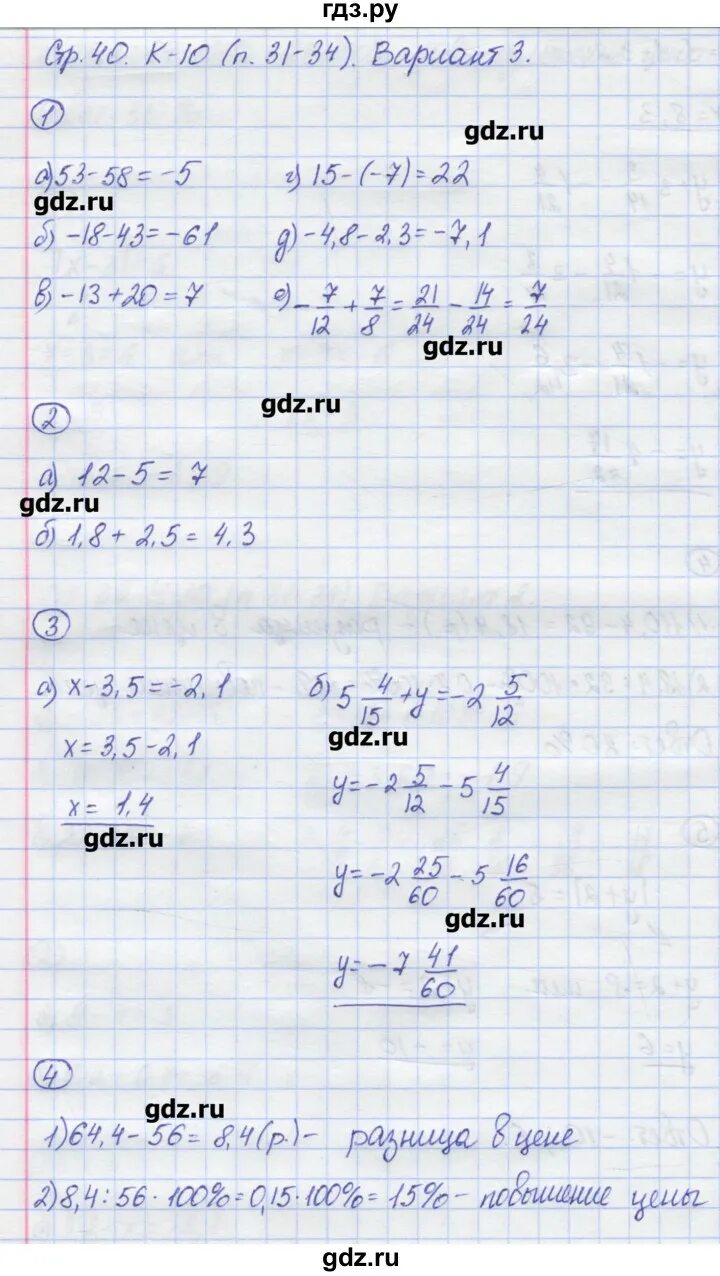 гдз.ру
Стр. 40. К-10 (п. 31-34). Вариант 3.
1
gdz.ru
а) 53-58 = -5
г) 15-(-7) = 22
gdz.ru
б) -18-43 = -61
д) -4,8-2,3 = -7,1
в) -13+20 = 7
е) -7/12 + 7/8 = 21/24 - 14/24 = 7/24
gdz.ru
gdz.ru
2
а) 12-5 = 7
gdz.ru
б) 1,8 + 2,5 = 4,3
3
а) x-3,5 = -2,1
x = 3,5-2,1
x = 1,4
gdz.ru
б) 5 4/15 + y = -2 5/12
gdz.ru
y = -2 5/12 - 5 4/15
y = -2 25/60 - 5 16/60
gdz.ru
y = -7 41/60
4
gdz.ru
1) 64,4-56 = 8,4 (р.) - разница в цене
2) 8,4 : 56 · 100% = 0,15 · 100% = 15% - повышение цены
gdz.ru